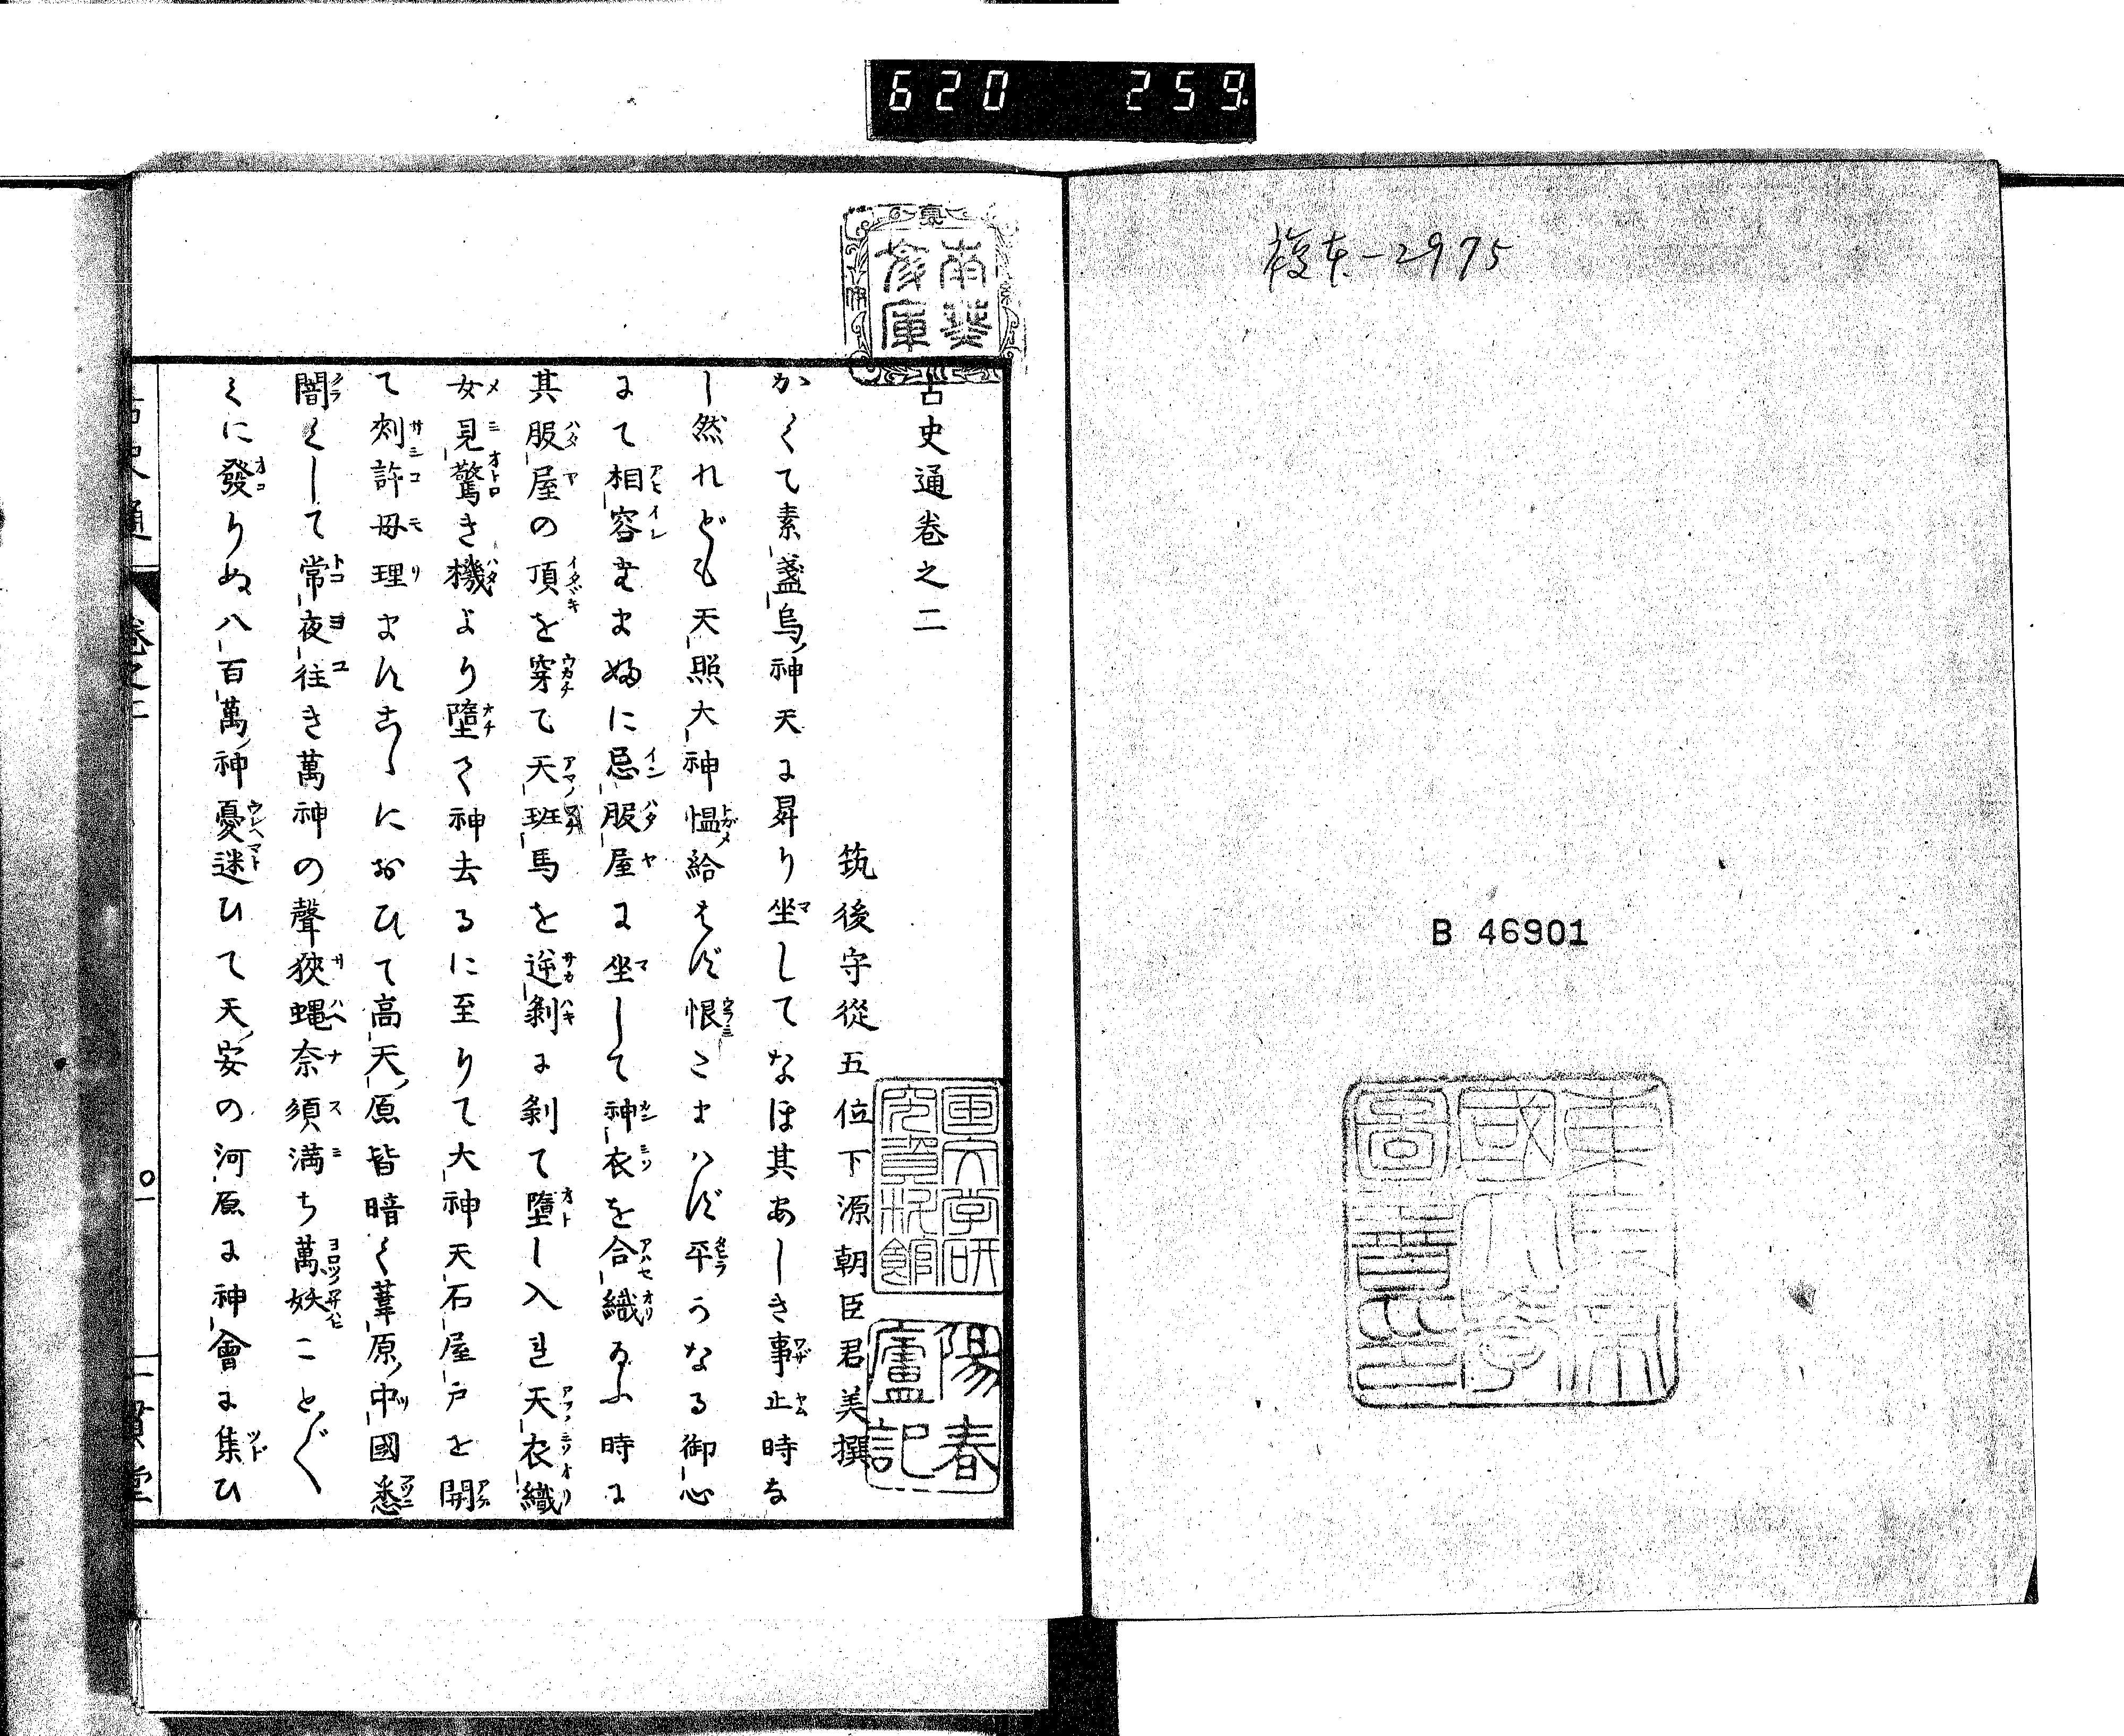 620 259
複本-2975
B 46901
東京帝國大學圖書印
南葵文庫
国文学研究資料館
陽春廬記
古史通卷之二
筑後守從五位下源朝臣君美撰
かくて素盞烏神天に昇り坐してなほ其あしき事止時な
し然れども天照大神慍給はず恨こまはず平うなる御心
にて相容たまぬに忌服屋に坐して神衣を合織給ふ時に
其服屋の頂を穿て天班馬を逆剝に剝て墮し入れ天衣織
女見驚き機より墮て神去るに至りて大神天石屋戶を開
て刺許母理ましましにおひて高天原皆暗く葦原中國悉
闇くして常夜往き萬神の聲狹蠅奈須満ち萬妖ことごと
くに發りぬ八百萬神憂迷ひて天安の河原に神會に集ひ
古史通 卷之二 一貫堂